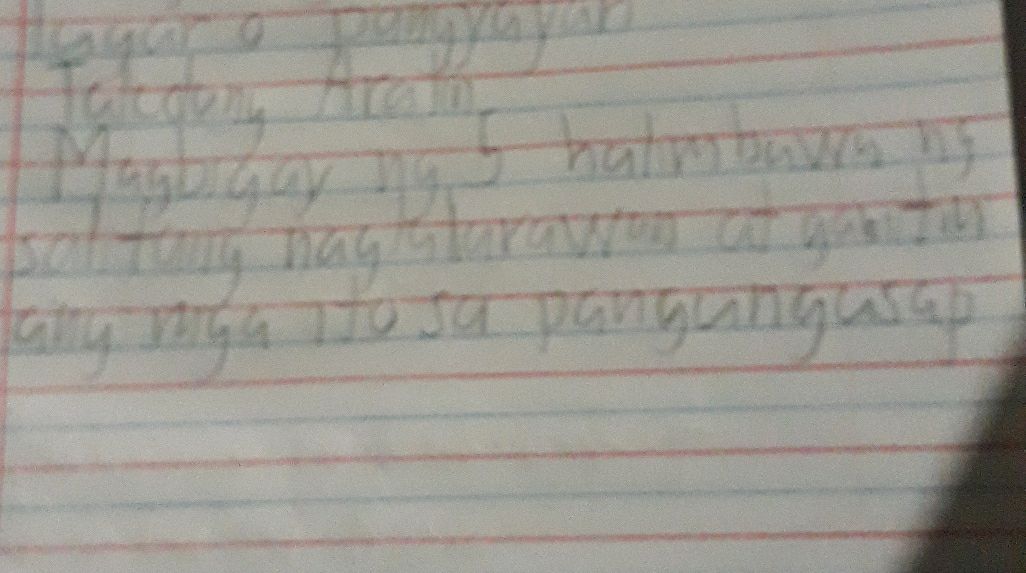 lugar o pangyayari
Takdang Aralin
Magbigay ng 5 halimbawa ng
salitang naglalarawan at gamitin
ang mga ito sa pangungusap